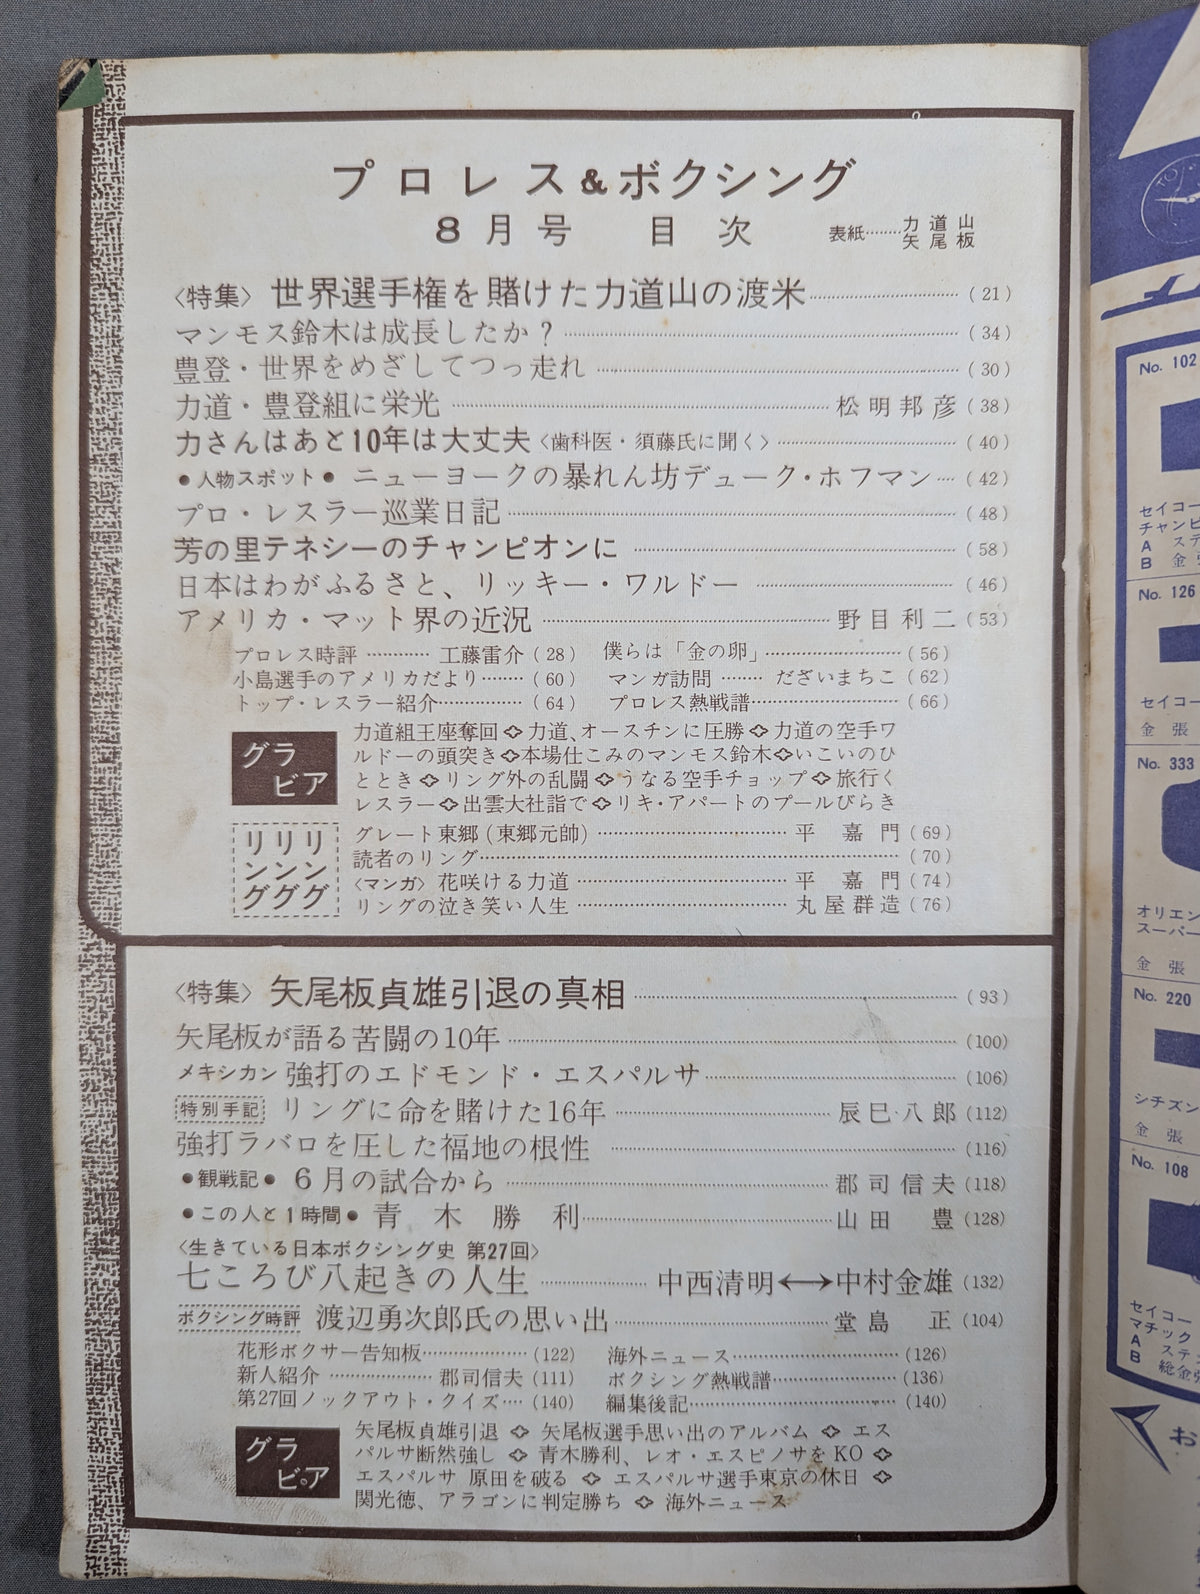 プロレス&ボクシング
8月号　目次
表紙………力道山
矢尾板
〈特集〉世界選手権を賭けた力道山の渡米 (21)
マンモス鈴木は成長したか？ (34)
豊登・世界をめざしてつっ走れ (30)
力道・豊登組に栄光 松明邦彦 (38)
力さんはあと10年は大丈夫〈歯科医・須藤氏に聞く〉 (40)
●人物スポット● ニューヨークの暴れん坊デューク・ホフマン (42)
プロ・レスラー巡業日記 (48)
芳の里テネシーのチャンピオンに (58)
日本はわがふるさと、リッキー・ワルドー (46)
アメリカ・マット界の近況 野目利二 (53)
プロレス時評 工藤雷介 (28) 僕らは「金の卵」 (56)
小島選手のアメリカだより (60) マンガ訪問 だざいまちこ (62)
トップ・レスラー紹介 (64) プロレス熱戦譜 (66)
グラビア
力道組王座奪回 ❖ 力道、オースチンに圧勝 ❖ 力道の空手ワ
ルドーの頭突き ❖ 本場仕こみのマンモス鈴木 ❖ いこいのひ
ととき ❖ リング外の乱闘 ❖ うなる空手チョップ ❖ 旅行く
レスラー ❖ 出雲大社詣で ❖ リキ・アパートのプールびらき
リング リング リング
グレート東郷(東郷元帥) 平嘉門 (69)
読者のリング (70)
〈マンガ〉花咲ける力道 平嘉門 (74)
リングの泣き笑い人生 丸屋群造 (76)
〈特集〉矢尾板貞雄引退の真相 (93)
矢尾板が語る苦闘の10年 (100)
メキシカン 強打のエドモンド・エスパルサ (106)
特別手記 リングに命を賭けた16年 辰巳八郎 (112)
強打ラバロを圧した福地の根性 (116)
●観戦記● 6月の試合から 郡司信夫 (118)
●この人と1時間● 青木勝利 山田豊 (128)
〈生きている日本ボクシング史 第27回〉
七ころび八起きの人生 中西清明↔中村金雄 (132)
ボクシング時評 渡辺勇次郎氏の思い出 堂島正 (104)
花形ボクサー告知板 (122) 海外ニュース (126)
新人紹介 郡司信夫 (111) ボクシング熱戦譜 (136)
第27回ノックアウト・クイズ (140) 編集後記 (140)
グラビア
矢尾板貞雄引退 ❖ 矢尾板選手思い出のアルバム ❖ エス
パルサ断然強し ❖ 青木勝利、レオ・エスピノサをKO ❖
エスパルサ 原田を破る ❖ エスパルサ選手東京の休日 ❖
関光徳、アラゴンに判定勝ち ❖ 海外ニュース
No. 102
セイコー
チャンピ
A ステ
B 金
No. 126
セイコー
金張
No. 333
オリエン
スーパー
金張
No. 220
シチズン
金張
No. 108
セイコー
マチック
A ステ
B 総金張
お